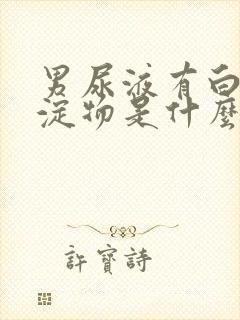 男尿液有白
淀物是什麼
許寶詩